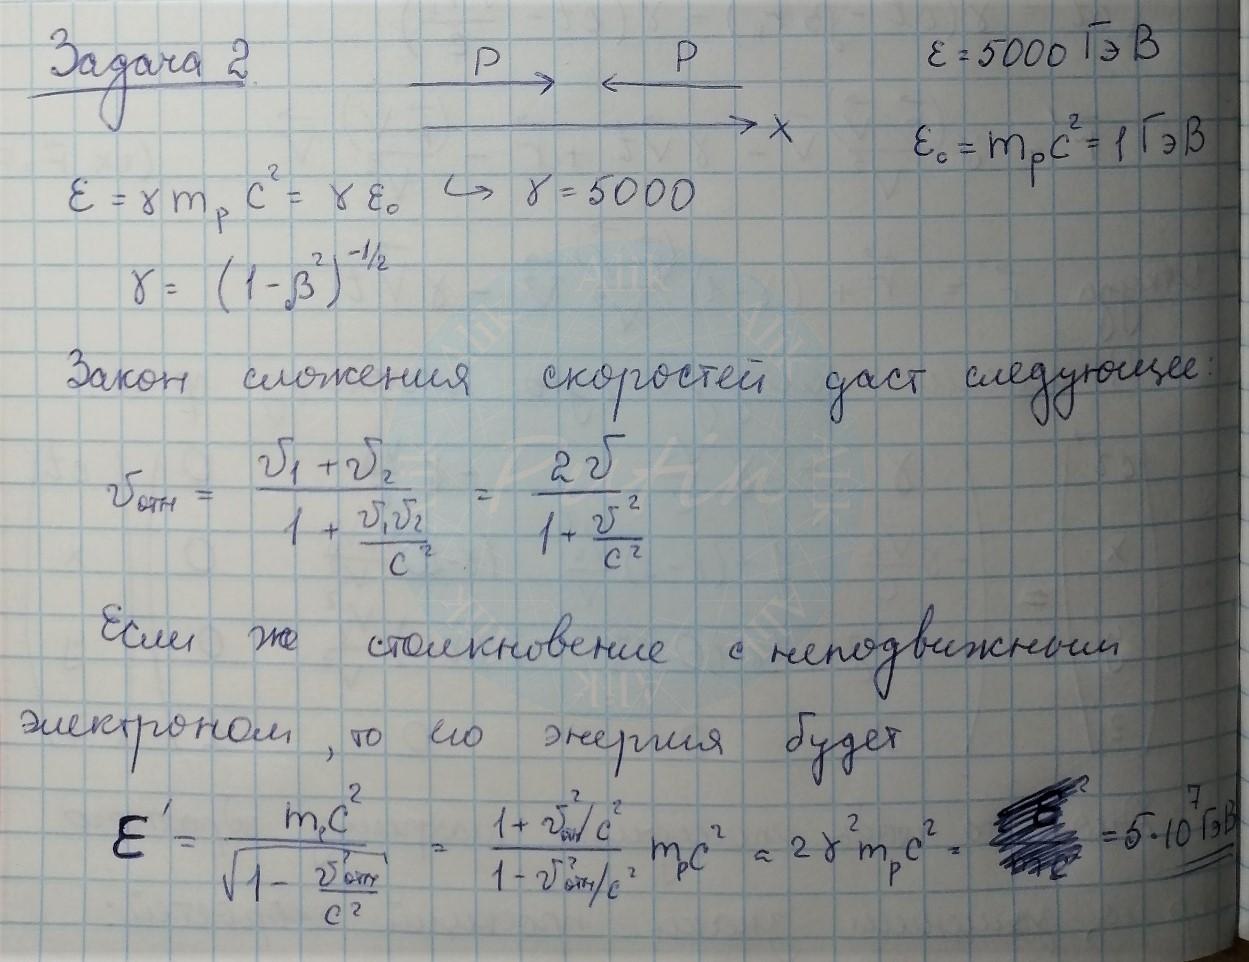 Задача 2. P P ε = 5000 ГэВ
x
ε₀ = mₚc² = 1 ГэВ
ε = γ mₚ c² = γ ε₀ ↪ γ = 5000
γ = (1 - β²)^(-1/2)
Закон сложения скоростей даст следующее:
v_отн = (v₁ + v₂) / (1 + v₁v₂/c²) = 2v / (1 + v²/c²)
Если же столкновение с неподвижным
электроном, то его энергия будет
ε' = mₚc² / √(1 - v²_отн/c²) = (1 + v²_отн/c²) / (1 - v²_отн/c²) mₚc² ≈ 2γ² mₚc² = = 5·10⁷ ГэВ